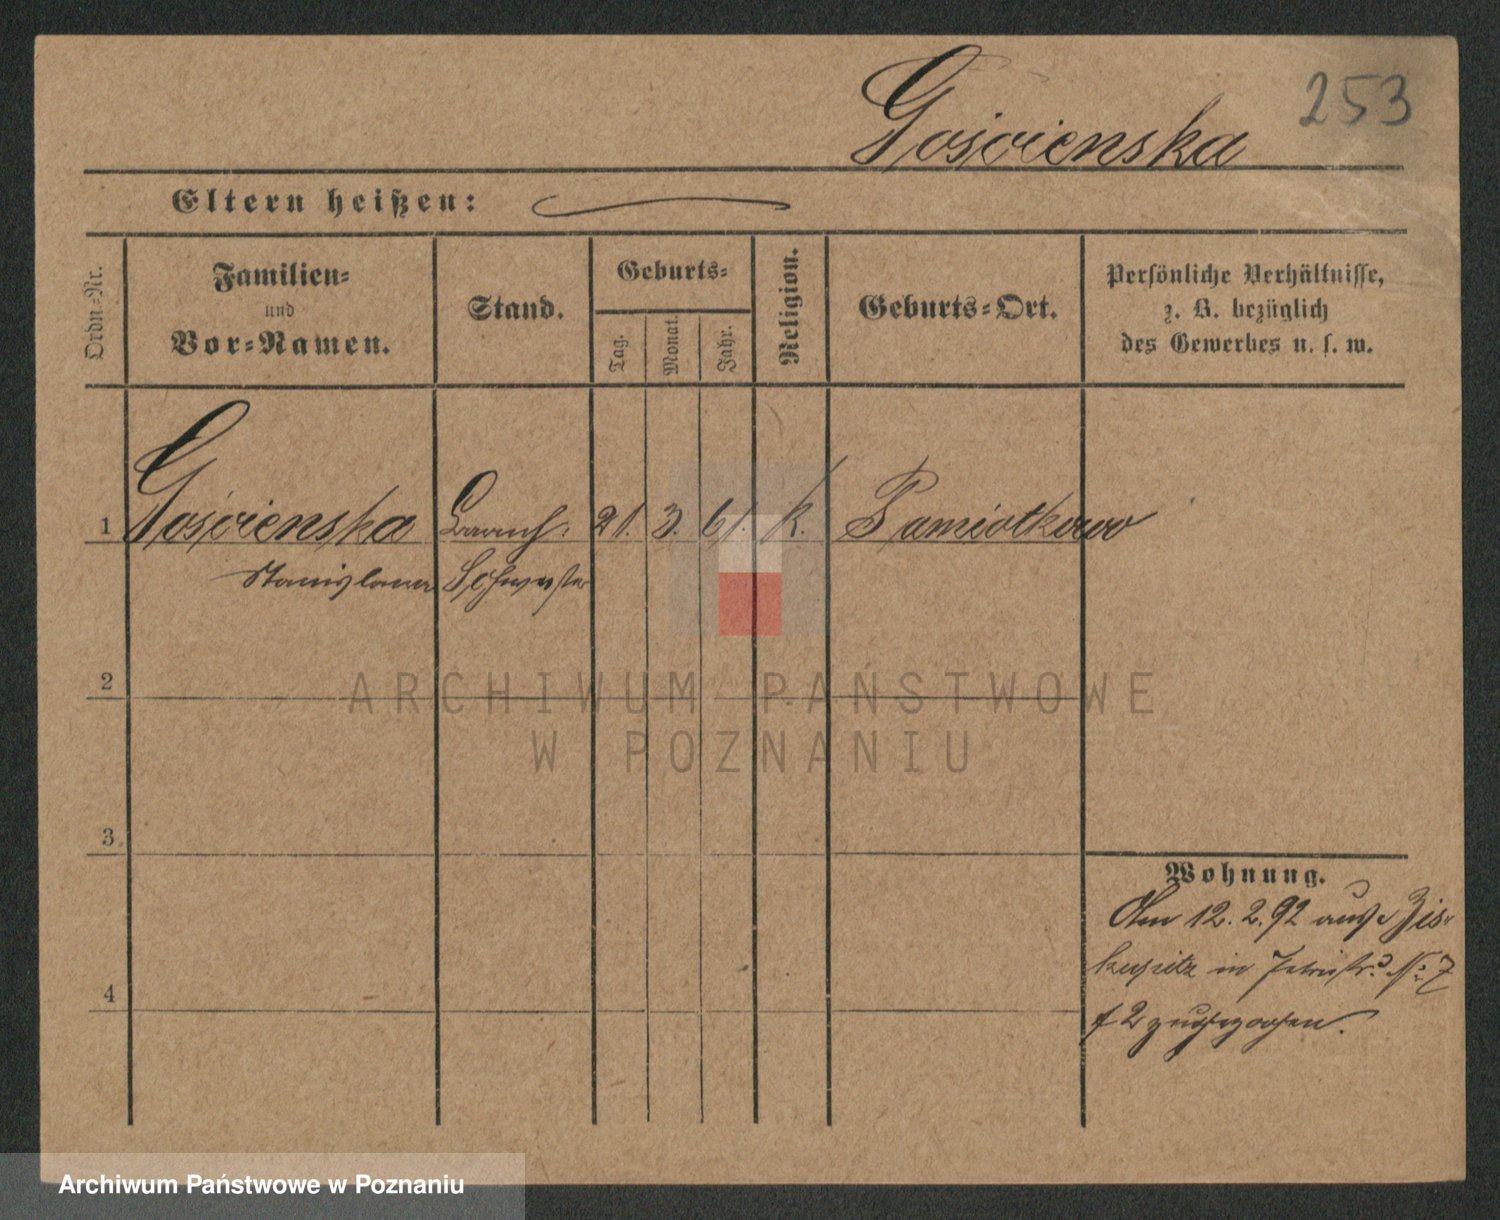 Gościenska
253
Eltern heißen:
Ordn-Nr.
Familien-
und
Vor-Namen.
Stand.
Geburts-
Tag.
Monat.
Jahr.
Religion.
Geburts-Ort.
Persönliche Verhältnisse,
z. B. bezüglich
des Gewerbes u. s. w.
1 Gościenska Barmh: 21. 3. 61. K. Pamiotkowo
Stanislawa Schwester
ARCHIWUM PAŃSTWOWE
W POZNANIU
2
3
4
Wohnung.
Am 12. 2. 92 aus Zis-
kupitz in № 7
2 zugezogen.
Archiwum Państwowe w Poznaniu